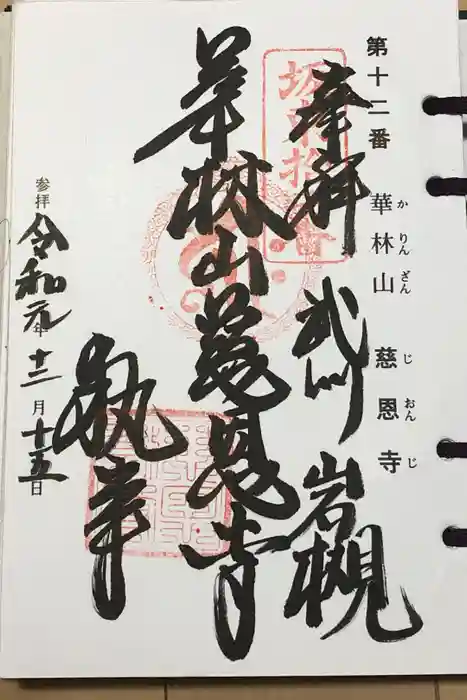 第十二番 華林山 慈恩寺
か りん ざん じ おん じ
奉拝 武州 岩槻
華林山慈恩寺
執事
参拝 令和元年十二月十五日